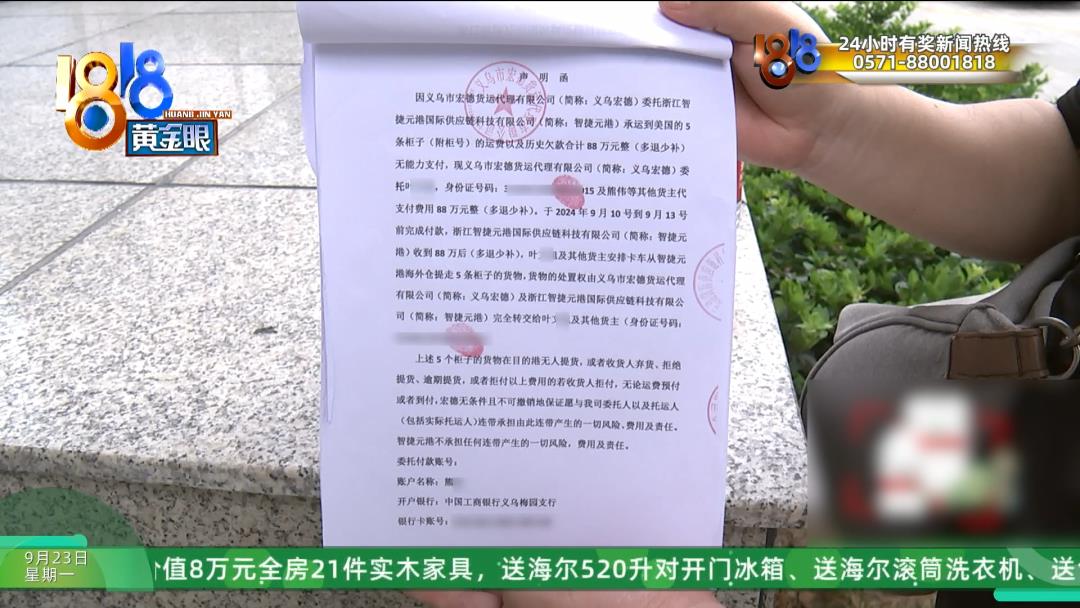 1818
HUANG JIN YAN
黄金眼
1818
24小时有奖新闻热线
0571-88001818
声 明 函
因义乌市宏德货运代理有限公司（简称：义乌宏德）委托浙江智
捷元港国际供应链科技有限公司（简称：智捷元港）承运到美国的5
条柜子（附柜号）的运费以及历史欠款合计88万元整（多退少补）
无能力支付，现义乌市宏德货运代理有限公司（简称：义乌宏德）委
托叶，身份证号码：3 015及熊伟等其他货主代
支付费用88万元整（多退少补）。于2024年9月10号到9月13号
前完成付款，浙江智捷元港国际供应链科技有限公司（简称：智捷元
港）收到88万后（多退少补），叶 及其他货主安排卡车从智捷元
港海外仓提走5条柜子的货物，货物的处置权由义乌市宏德货运代理
有限公司（简称：义乌宏德）及浙江智捷元港国际供应链科技有限公
司（简称：智捷元港）完全转交给叶 及其他货主（身份证号码：
上述5个柜子的货物在目的港无人提货，或者收货人弃货、拒绝
提货、逾期提货，或者拒付以上费用的若收货人拒付，无论运费预付
或者到付，宏德无条件且不可撤销地保证愿与我司委托人以及托运人
（包括实际托运人）连带承担由此连带产生的一切风险、费用及责任。
智捷元港不承担任何连带产生的一切风险，费用及责任。
委托付款账号：
账户名称：熊
开户银行：中国工商银行义乌梅园支行
银行卡账号：
9月23日
星期一
价值8万元全房21件实木家具，送海尔520升对开门冰箱、送海尔滚筒洗衣机、送